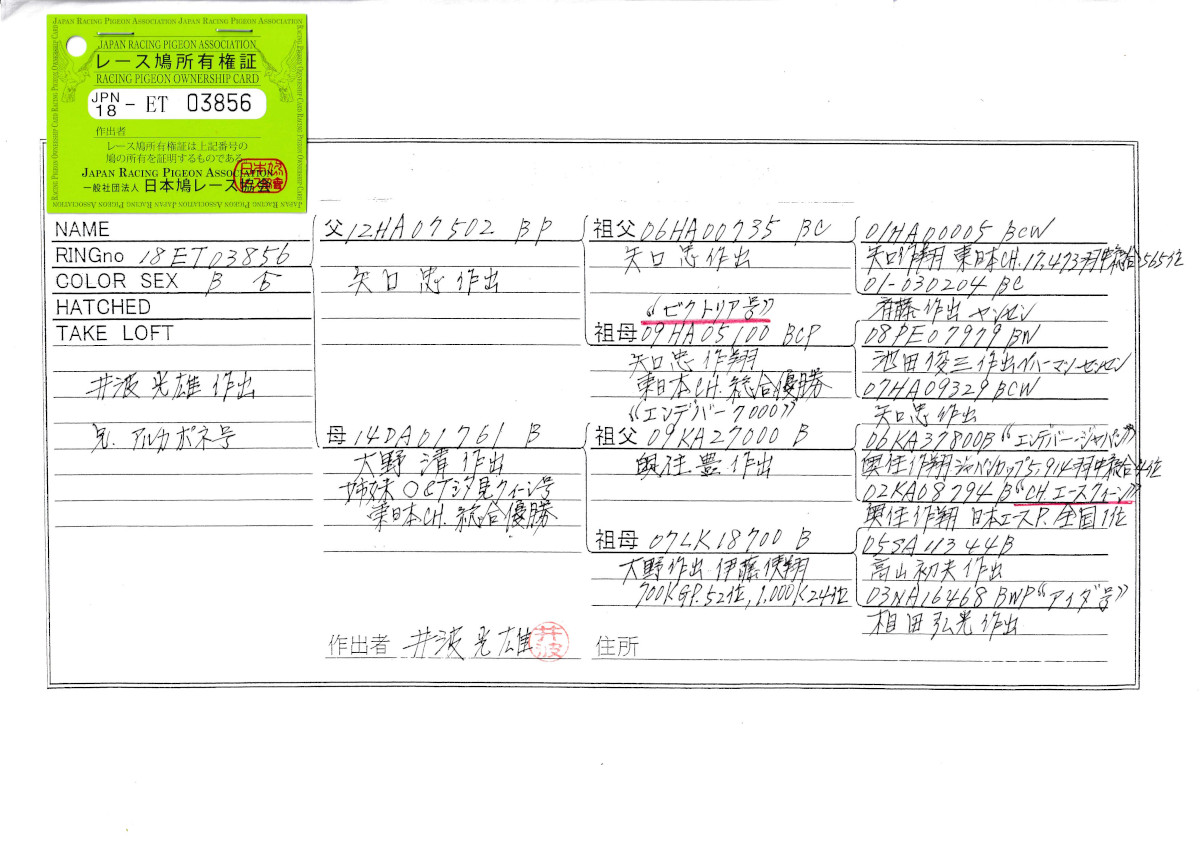 JAPAN RACING PIGEON ASSOCIATION JAPAN RACING PIGEON ASSOCIATION
JAPAN RACING PIGEON ASSOCIATION
レース鳩所有権証
RACING PIGEON OWNERSHIP CARD
JPN 18 - ET 03856
作出者
レース鳩所有権証は上記番号の
鳩の所有を証明するものである。
JAPAN RACING PIGEON ASSOCIATION
一般社団法人 日本鳩レース協会
NAME
RINGno 18ET03856
COLOR SEX B ♂
HATCHED
TAKE LOFT
井波 光雄 作出
兄. アルカポネ号
父 12HA07502 BP
矢口 忠 作出
母 14DA01761 B
大野 清 作出
姉妹 O&T汐見クィーン号
東日本CH. 総合優勝
祖父 06HA00735 BC
矢口 忠 作出
“ビクトリア号”
祖母 09HA05100 BCP
矢口忠 作翔
東日本CH. 総合優勝
“エンデバー7000”
祖父 09KA27000 B
奥住.豊 作出
祖母 07LK18700 B
大野作出 伊藤 翔
700KGP.52位, 1,000K24位
01HA00005 BCW
矢口作翔 東日本CH.17,473羽中総合565位
01-030204 BC
斉藤 作出 ヤンセン
08PE07979 BW
池田俊三作出
07HA09329 BCW
矢口忠 作出
06KA37800B “エンデバー・ジャパン”
奥住作翔 ジャパンカップ5,914羽中総合4位
02KA08794 B “CH.エースクィーン”
奥住作翔 日本エースP. 全国1位
05SA11344B
高山初夫 作出
03NA16468 BWP “アイダ号”
相田弘光 作出
作出者 井波 光雄 井波
住所